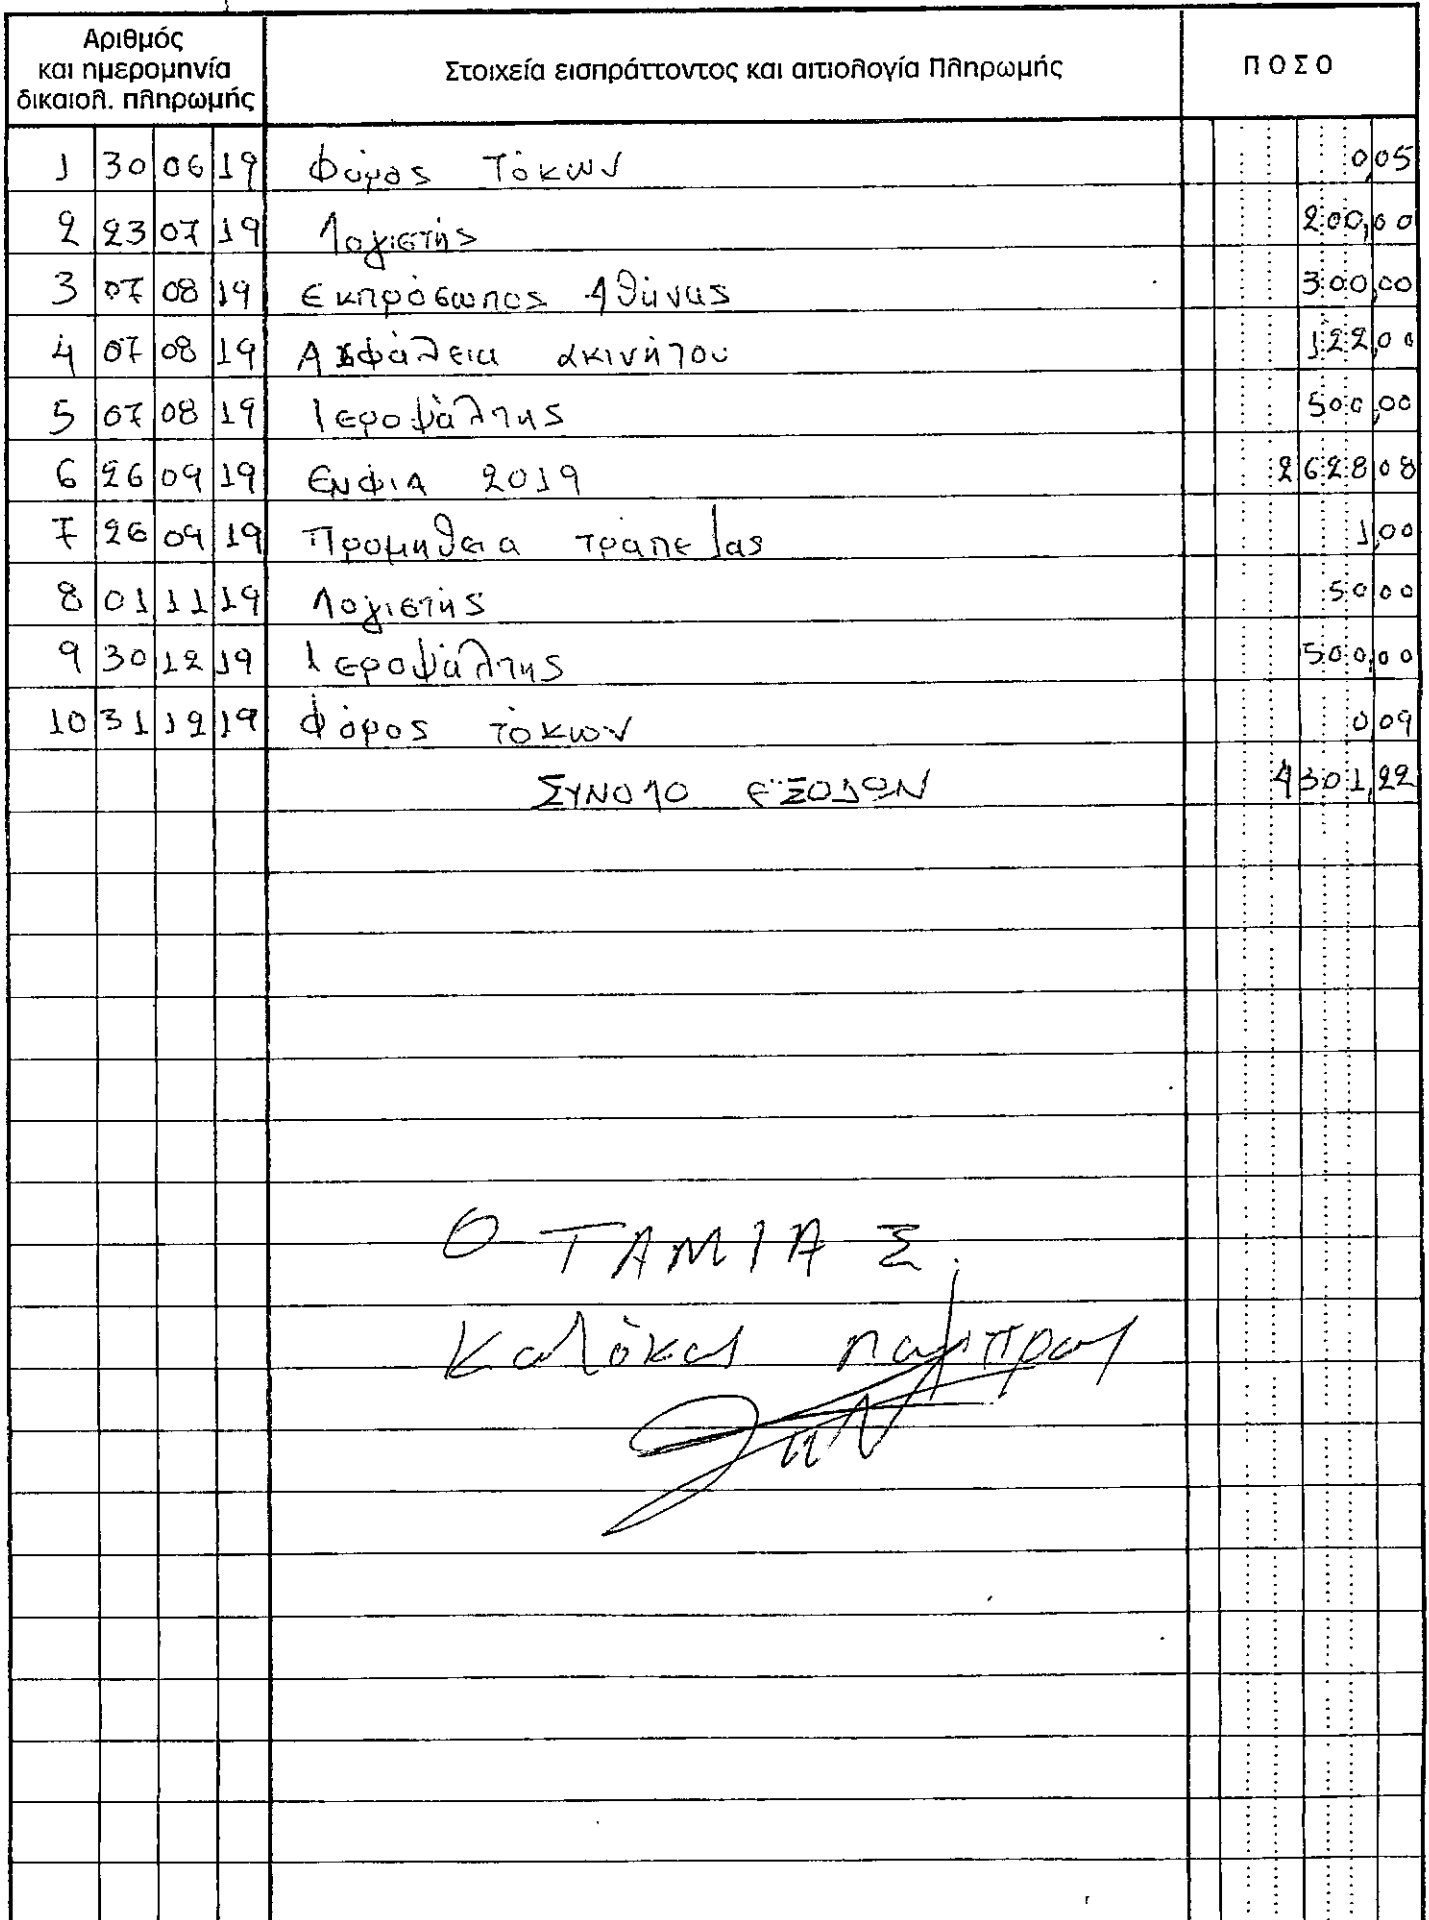 Αριθμός
και ημερομηνία
δικαιολ. πληρωμής
Στοιχεία εισπράττοντος και αιτιολογία πληρωμής
ΠΟΣΟ
1 30 06 19 Φόρος Τόκων 0,05
2 23 07 19 Λογιστής 200,00
3 07 08 19 Εκπρόσωπος Αθήνας 300,00
4 07 08 19 Ασφάλεια ακινήτου 122,00
5 07 08 19 Ιεροψάλτης 500,00
6 26 09 19 ΕΝΦΙΑ 2019 2628 08
7 26 09 19 Προμηθεια τράπεζας 1,00
8 01 11 19 Λογιστής 50 00
9 30 12 19 Ιεροψάλτης 500,00
10 31 12 19 Φόρος τόκων 0,09
ΣΥΝΟΛΟ ΕΞΟΔΩΝ 4301,22
Ο ΤΑΜΙΑΣ